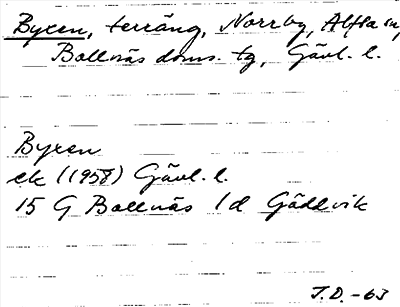 Byxen, terräng, Norrby, Alfta sn,
Bollnäs doms. tg, Gävl. l.
Byxen
ek (1958) Gävl. l.
15 G Bollnäs 1 d Gäddvik
J.D. -63